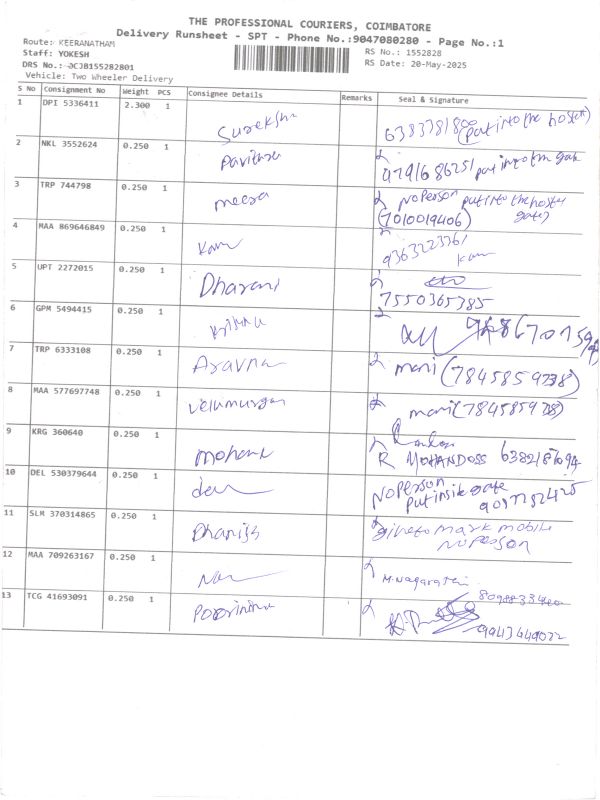 THE PROFESSIONAL COURIERS, COIMBATORE
Delivery Runsheet - SPT - Phone No.:9047080280 - Page No.:1
Route: KEERANATHAM
Staff: YOKESH
RS No.: 1552828
DRS No.: DCJB155282801
RS Date: 20-May-2025
Vehicle: Two Wheeler Delivery
S No Consignment No Weight PCS Consignee Details Remarks Seal & Signature
1 DPI 5336411 2.300 1 Sureksha 6383781800 (put into the hostel)
2 NKL 3552624 0.250 1 Pavithra put into the gate
3 TRP 744798 0.250 1 meera No Person put into the hostel
(7010019406) gate)
4 MAA 869646849 0.250 1 9363223761
5 UPT 2272015 0.250 1 Dharani
7550365385
6 GPM 5494415 0.250 1 Krishna
7 TRP 6333108 0.250 1 Aravna mani (7845859738)
8 MAA 577697748 0.250 1 Velumurgan mani
9 KRG 360640 0.250 1 mohana
R MOHANDOSS
10 DEL 530379644 0.250 1 dev No Person
Put inside gate
11 SLM 370314865 0.250 1 Dhanish mark mobile
no person
12 MAA 709263167 0.250 1 M. Nagarathi
13 TCG 41693091 0.250 1 Poornima
9943449072